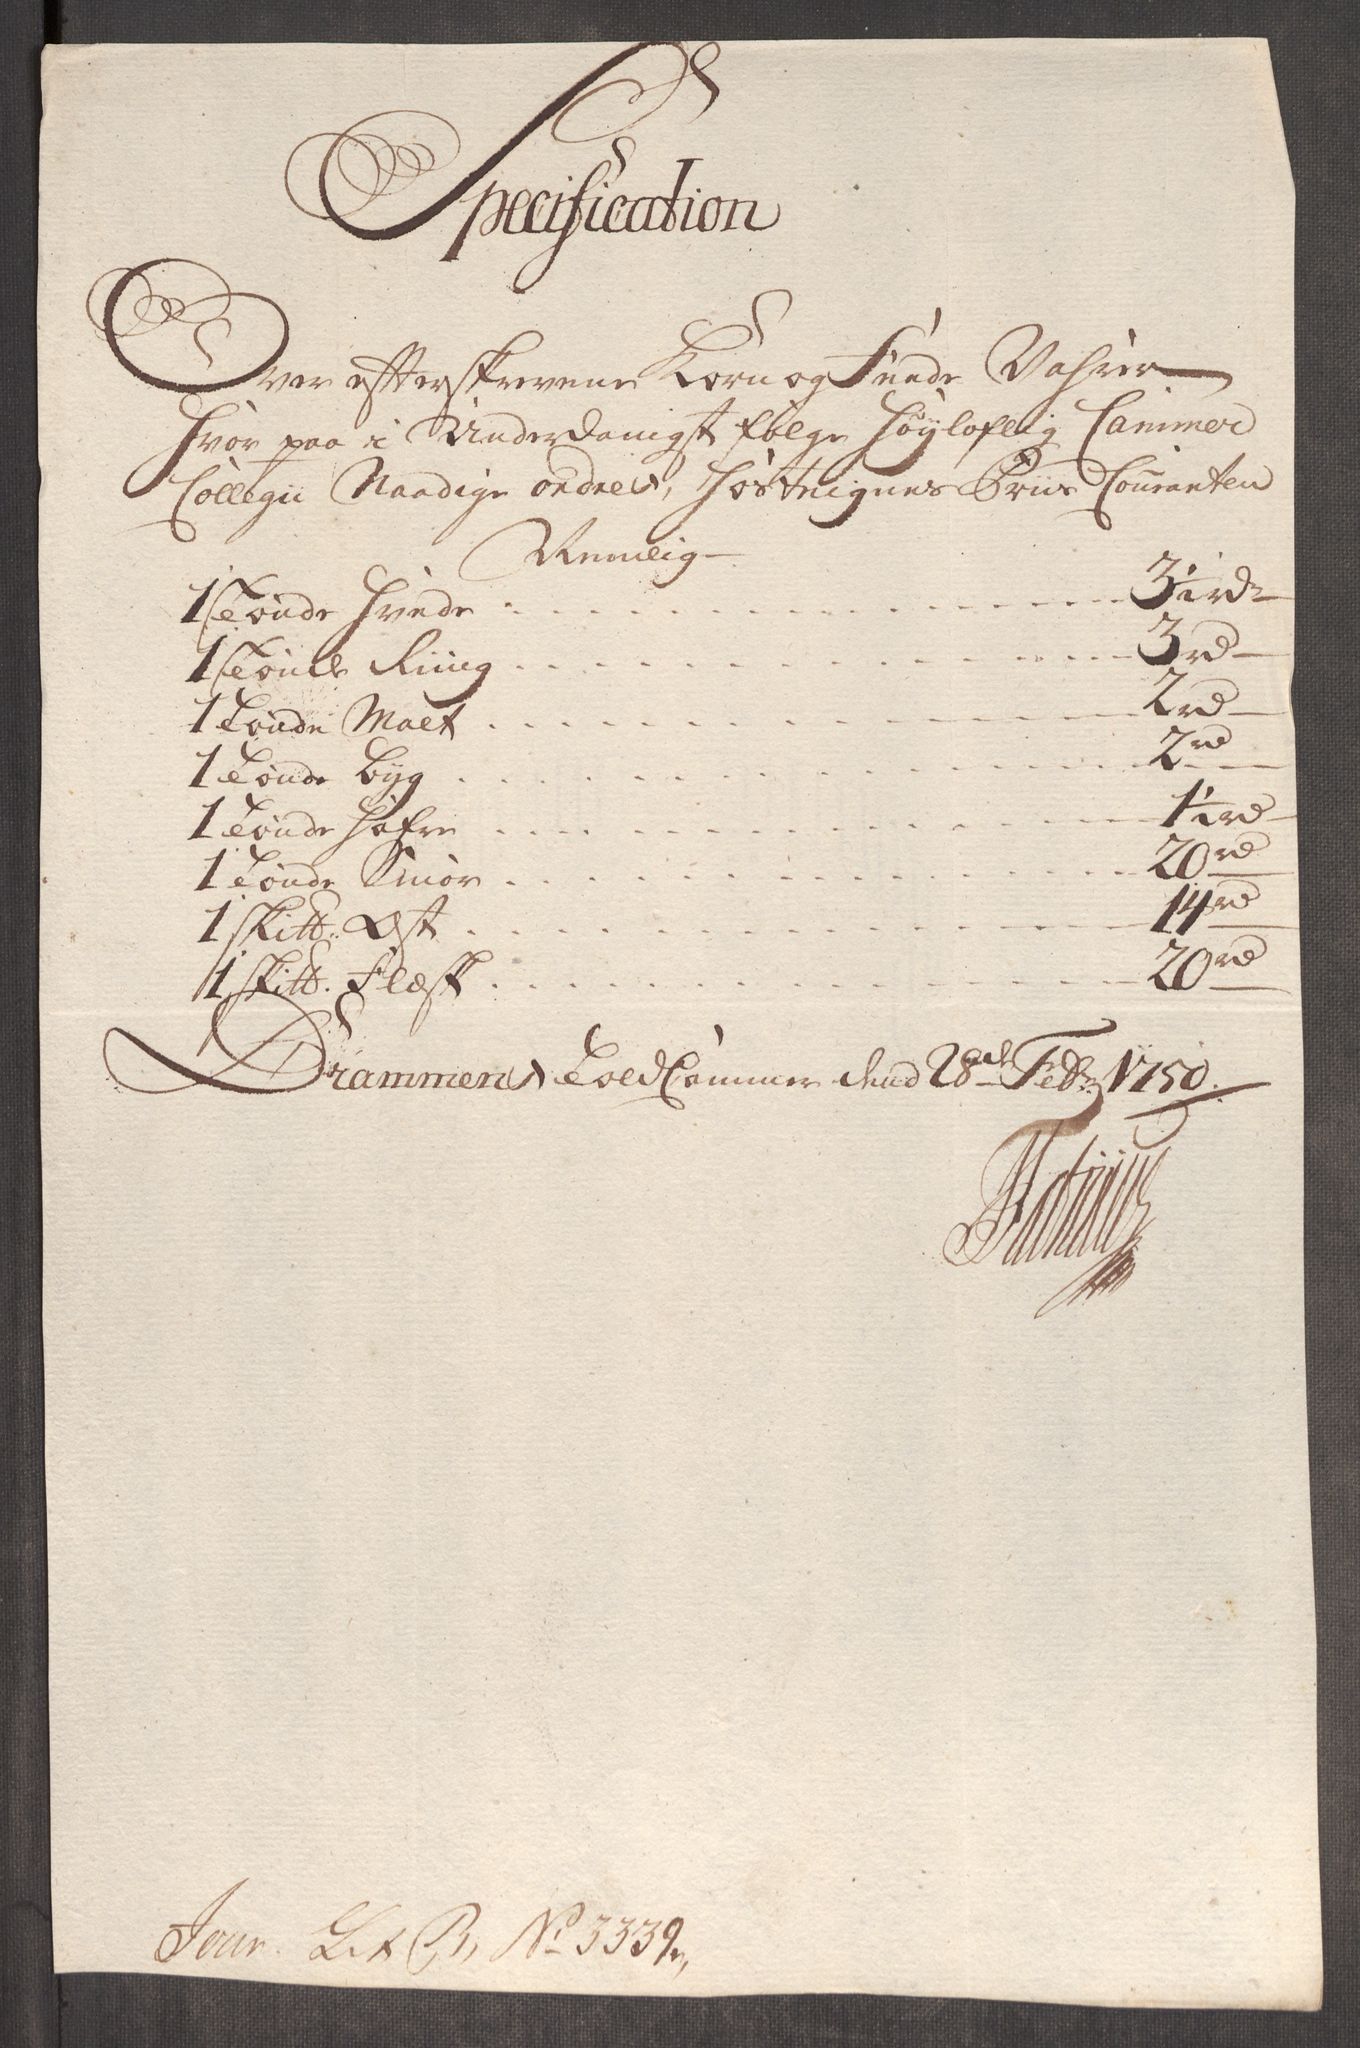 Specification
Over efterskrevene Korn og Feede Vahrer
Hvor paa i Underdanigst følge Høyloflig Cammer
Collegii Naadige ordres, hostteignes Priis Couranten
Nemlig
1 Tønde Hvede 3½ rd
1 Tønde Rüüg 3 rd
1 Tønde Malt 2 rd
1 Tønde Byg 2 rd
1 Tønde Hafre 1½ rd
1 Tønde Smør 20 rd
1 Skitt: Ost 14 rd
1 Skitt. Flæsk 20 rd
Drammens Told Cammer dend 28de Febr 1750.
Jour. Lit B, No 3339,